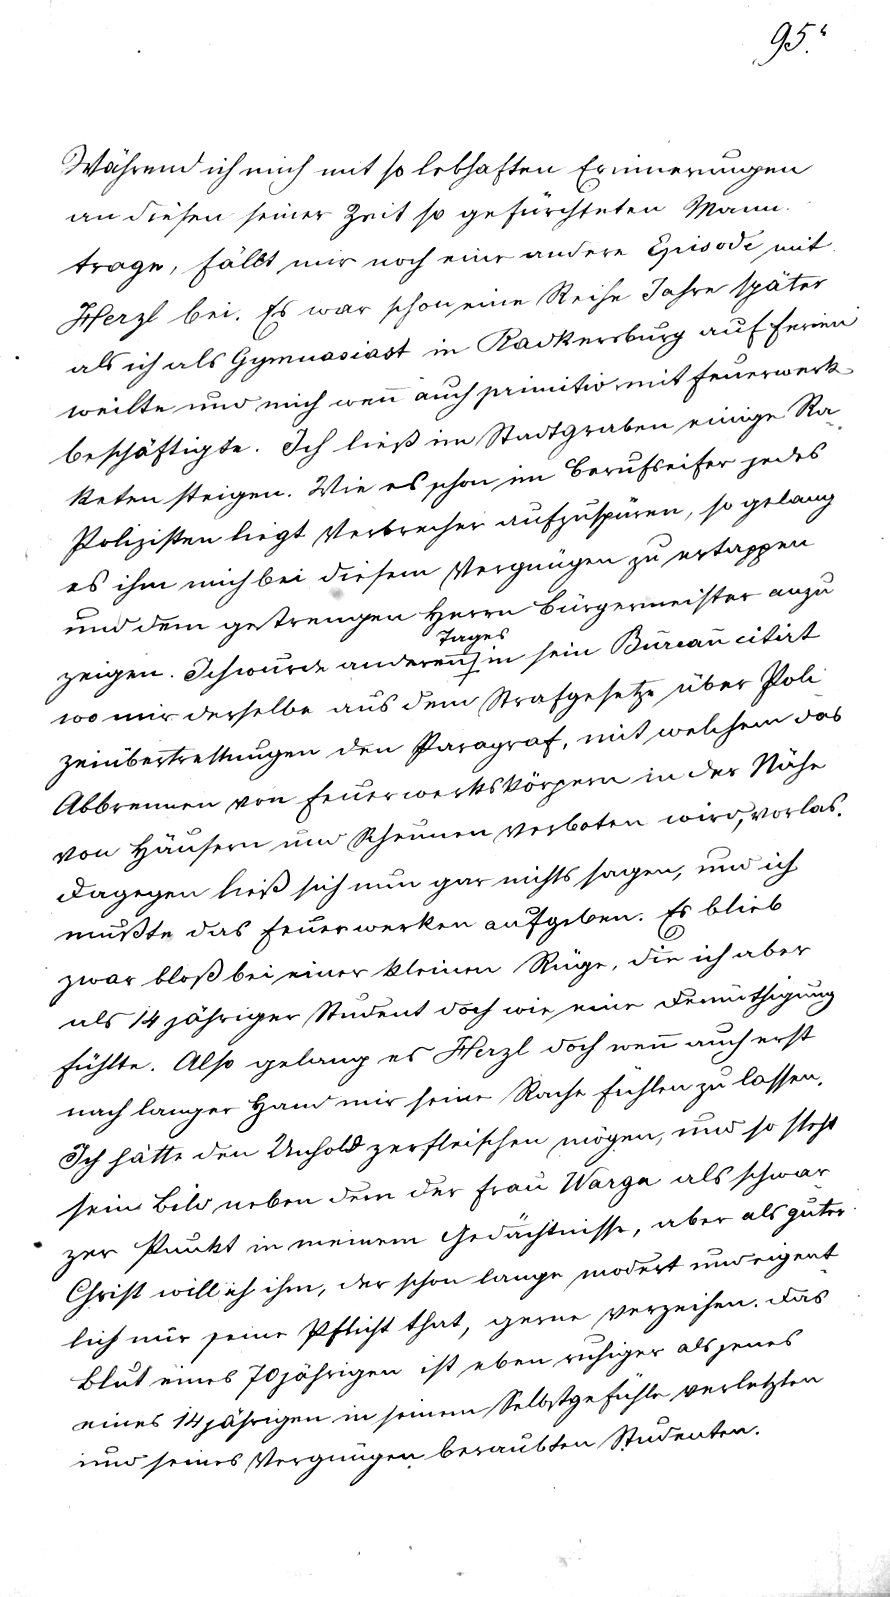 95.
Während ich mich mit so lebhaften Erinnerungen
an diesen seiner Zeit so gefürchteten Mann
trage, fällt mir noch eine andere Episode mit
Herzl bei. Es war schon eine Reihe Jahre später
als ich als Gymnasiast in Radkersburg auf Ferien
weilte und mich wen̅ auch primitiv mit Feuerwerk
beschäftigte. Ich ließ im Stadtgraben einige Ra-
keten steigen. Wie es schon im Berufseifer jedes
Polizisten liegt Verbrecher aufzuspüren, so gelang
es ihm mich bei diesem Vergnügen zu ertappen
und dem gestrengen Herrn Bürgermeister anzu
zeigen. Ich wurde anderen Tages in sein Bureau citirt
wo mir derselbe aus dem Strafgesetze über Poli
zeiübertrettungen den Paragraf, mit welchem das
Abbrennen von Feuerwerkskörpern in der Nähe
von Häusern und Scheunen verboten wird, vorlas.
Dagegen ließ sich nun gar nichts sagen, und ich
mußte das Feuerwerken aufgeben. Es blieb
zwar bloß bei einer kleinen Rüge, die ich aber
als 14 jähriger Student doch wie eine Demüthigung
fühlte. Also gelang es Herzl doch wen̅ auch erst
nach langer Hand mir seine Rache fühlen zu lassen.
Ich hätte den Unhold zerfleischen mögen, und so steht
sein Bild neben dem der Frau Warga als schwar-
zer Punkt in meinem Gedächtnisse, aber als guter
Christ will ich ihm, der schon lange modert und eigent-
lich nur seine Pflicht that, gerne verzeihen. Das
Blut eines 70jährigen ist eben ruhiger als jenes
eines 14 jährigen in seinem Selbstgefühle verletzten
und seines Vergnügen beraubten Studenten.